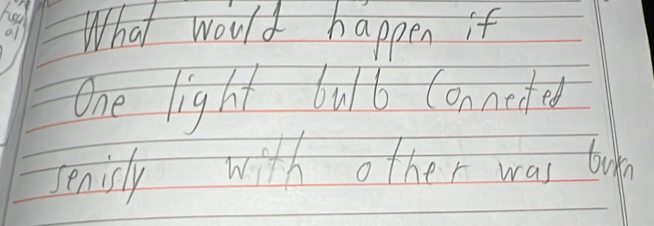 What would happen if
One light bulb Connected
senisly with other was burn